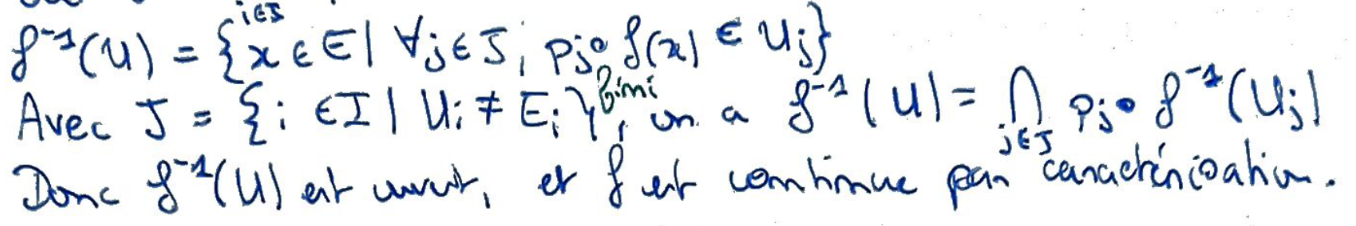 i∈J
f⁻¹(U) = {x ∈ E | ∀j∈J, pj∘f(x) ∈ Uj}
Avec J = {i ∈ I | Ui ≠ Ei} fini, on a f⁻¹(U) = ⋂_{j∈J} pj∘f⁻¹(Uj)
Donc f⁻¹(U) est ouvert, et f est continue par caractérisation.